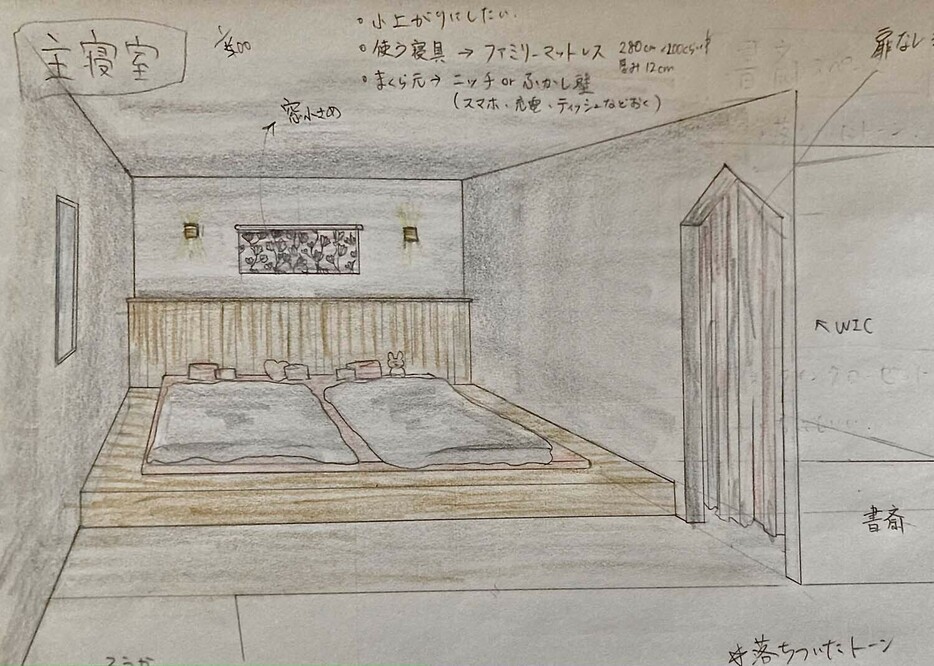 主寝室
・小上がりにしたい.
・使う寝具 → ファミリーマットレス 280cm×200cmくらい
厚み12cm
・まくら元→ ニッチ or ふかし壁
(スマホ・充電・ティッシュなどおく)
窓小さめ
扉なし
↖WIC
書斎
ろうか
*落ちついたトーン